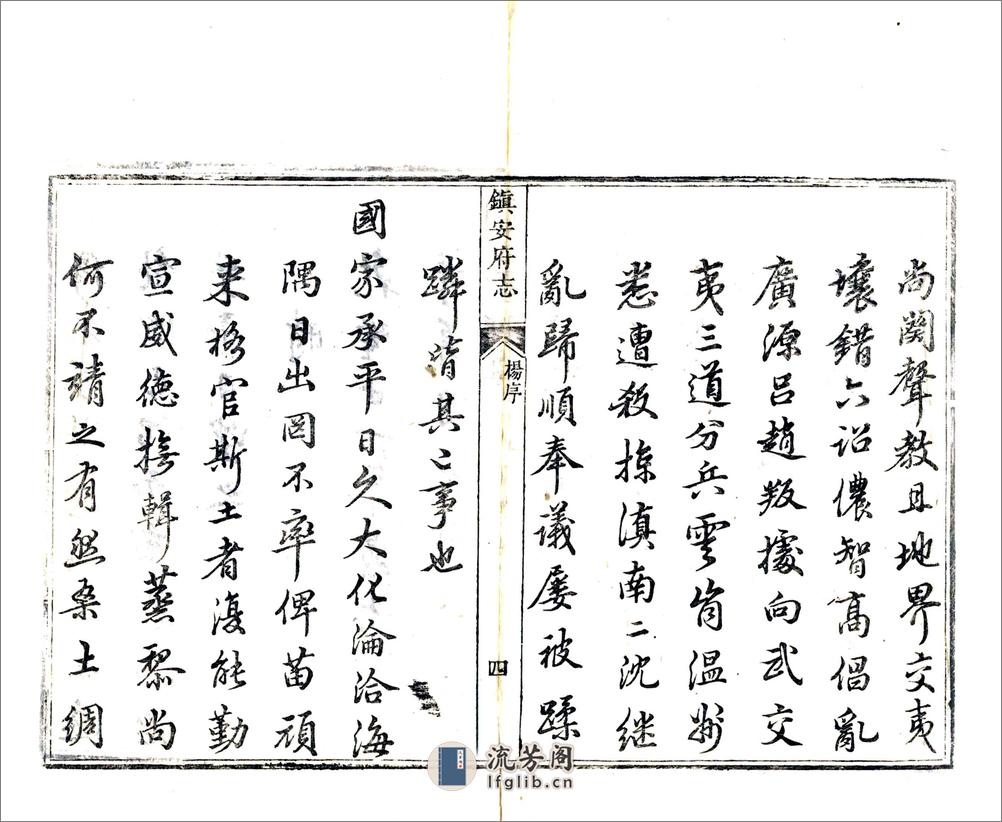 尚闕聲教且地界交夷
壤錯六詔儂智高倡亂
廣源呂趙叛據向武交
夷三道分兵雲肖温㔟
悉遭殺掠滇南二沈継
亂歸順奉議屡被蹂
鎮安府志
楊序
四
躪皆其〻事也
國家承平日久大化淪洽海
隅日出罔不率俾苗頑
来格官斯土者復能勤
宣威德撫輯蒸黎尚
何不靖之有然桑土綢
流芳阁
lfglib.cn